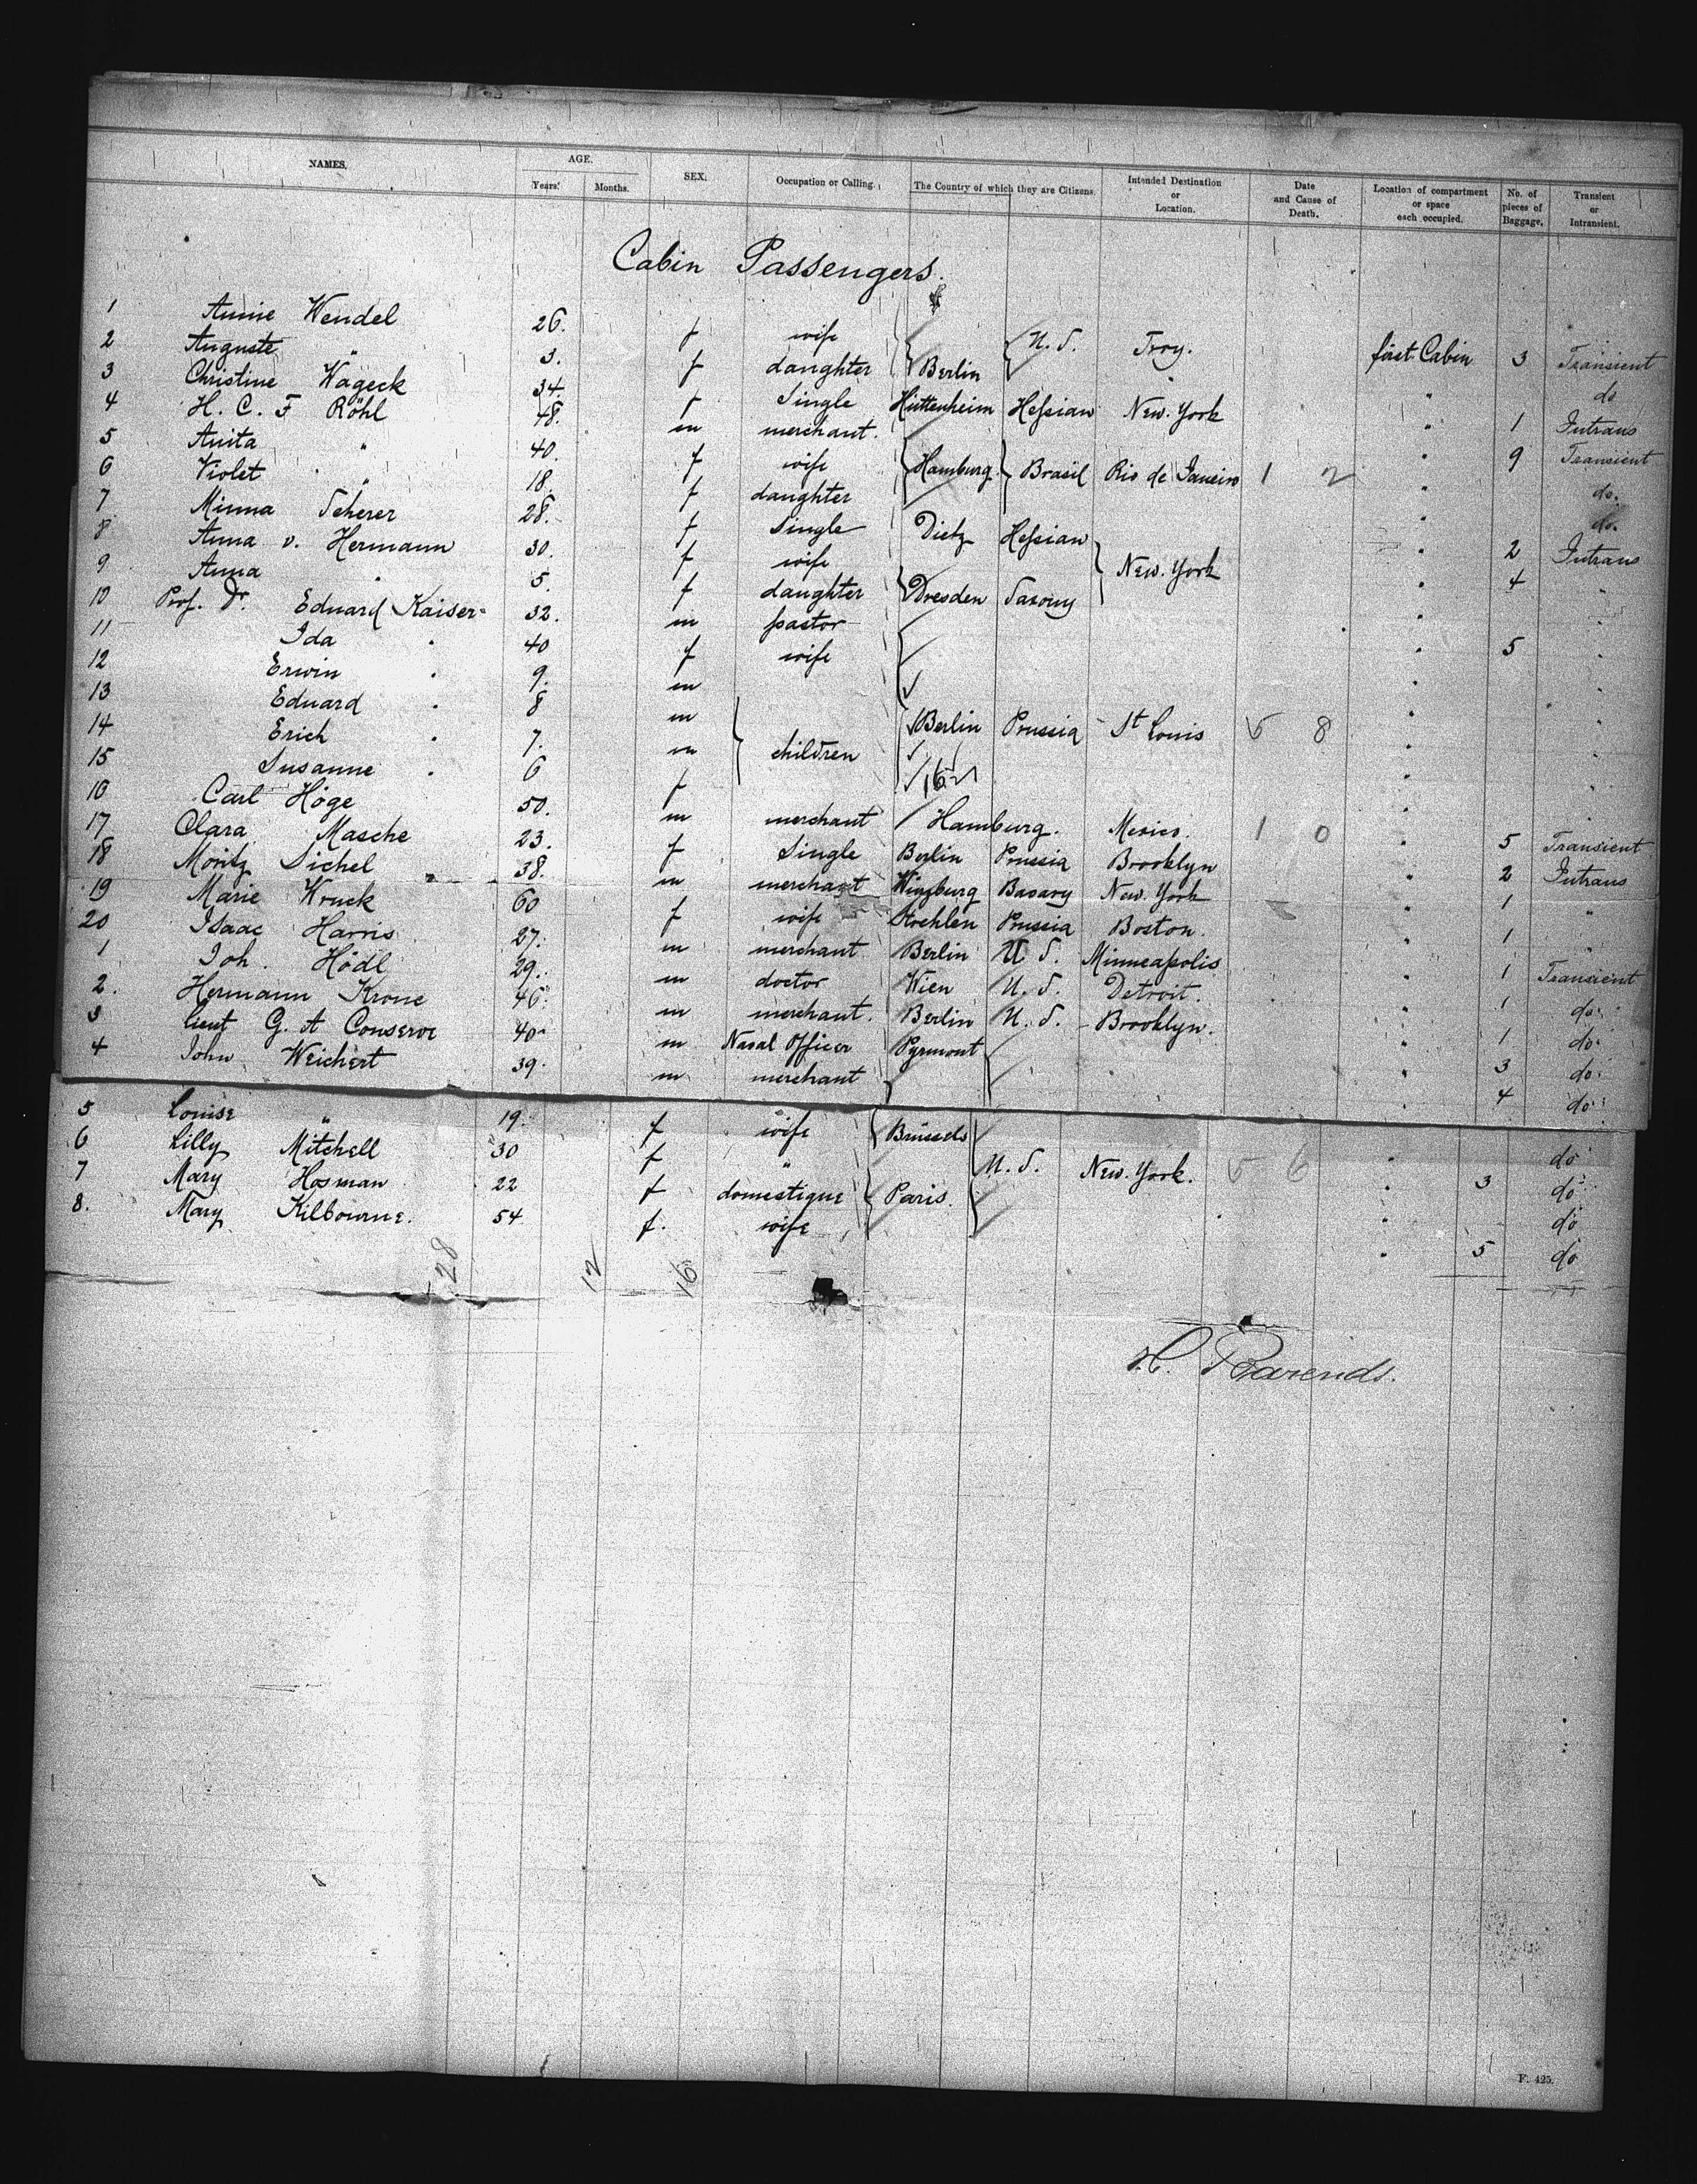 NAMES. AGE. SEX. Occupation or Calling. The Country of which they are Citizens. Intended Destination or Location. Date and Cause of Death. Location of compartment or space each occupied. No. of pieces of Baggage. Transient or Intransient.
Years. Months.
Cabin Passengers.
1 Annie Wendel 26. f wife Berlin U. S. Troy. first Cabin 3 Transient
2 Auguste " 3. f daughter " do
3 Christine Wageck 34. f Single Hüttenheim Hessian New. York " 1 Intrans
4 H. C. F Röhl 48. m merchant. Hamburg Brasil Rio de Janeiro 1 2 " 9 Transient
5 Anita " 40. f wife " do.
6 Violet " 18. f daughter " do.
7 Minna Scherer 28. f Single Dietz Hessian New. York " 2 Intrans
8 Anna v. Hermann 30. f wife Dresden Saxony " 4 "
9 Anna " 5. f daughter " "
10 Prof. Dr. Eduard Kaiser 32. m pastor Berlin Prussia St Louis 5 8 " 5 "
11 Ida " 40 f wife " "
12 Erwin " 9. m children " "
13 Eduard " 8 m " "
14 Erich " 7. m " "
15 Susanne " 6 f " "
16 Carl Höge 50. m merchant Hamburg. Mexico. 1 0 " 5 Transient
17 Clara Masche 23. f Single Berlin Prussia Brooklyn " 2 Intrans
18 Moritz Sichel 38. m merchant Bavary New. York " 1 "
19 Marie Wruck 60 f wife Prussia Boston. " 1 "
20 Isaac Harris 27. m merchant Berlin U. S. Minneapolis " 1 Transient
1 Joh. Hödl 29. m doctor Wien U. S. Detroit. " 1 do.
2. Hermann Krone 46. m merchant. Berlin U. S. Brooklyn. " 1 do.
3 Lieut G. A 40 m Naval Officer Pyrmont " 3 do.
4 John Weichert 39. m merchant " 4 do.
5 Louise " 19. f wife Brüssels do
6 Lilly Mitchell 30 f " Paris. U. S. New. York. 5 6 " 3 do
7 Mary Hosman 22 f domestique " do
8. Mary Kilbourne. 54 f. wife " 5 do
28 12 16
H. Barends.
F. 425.